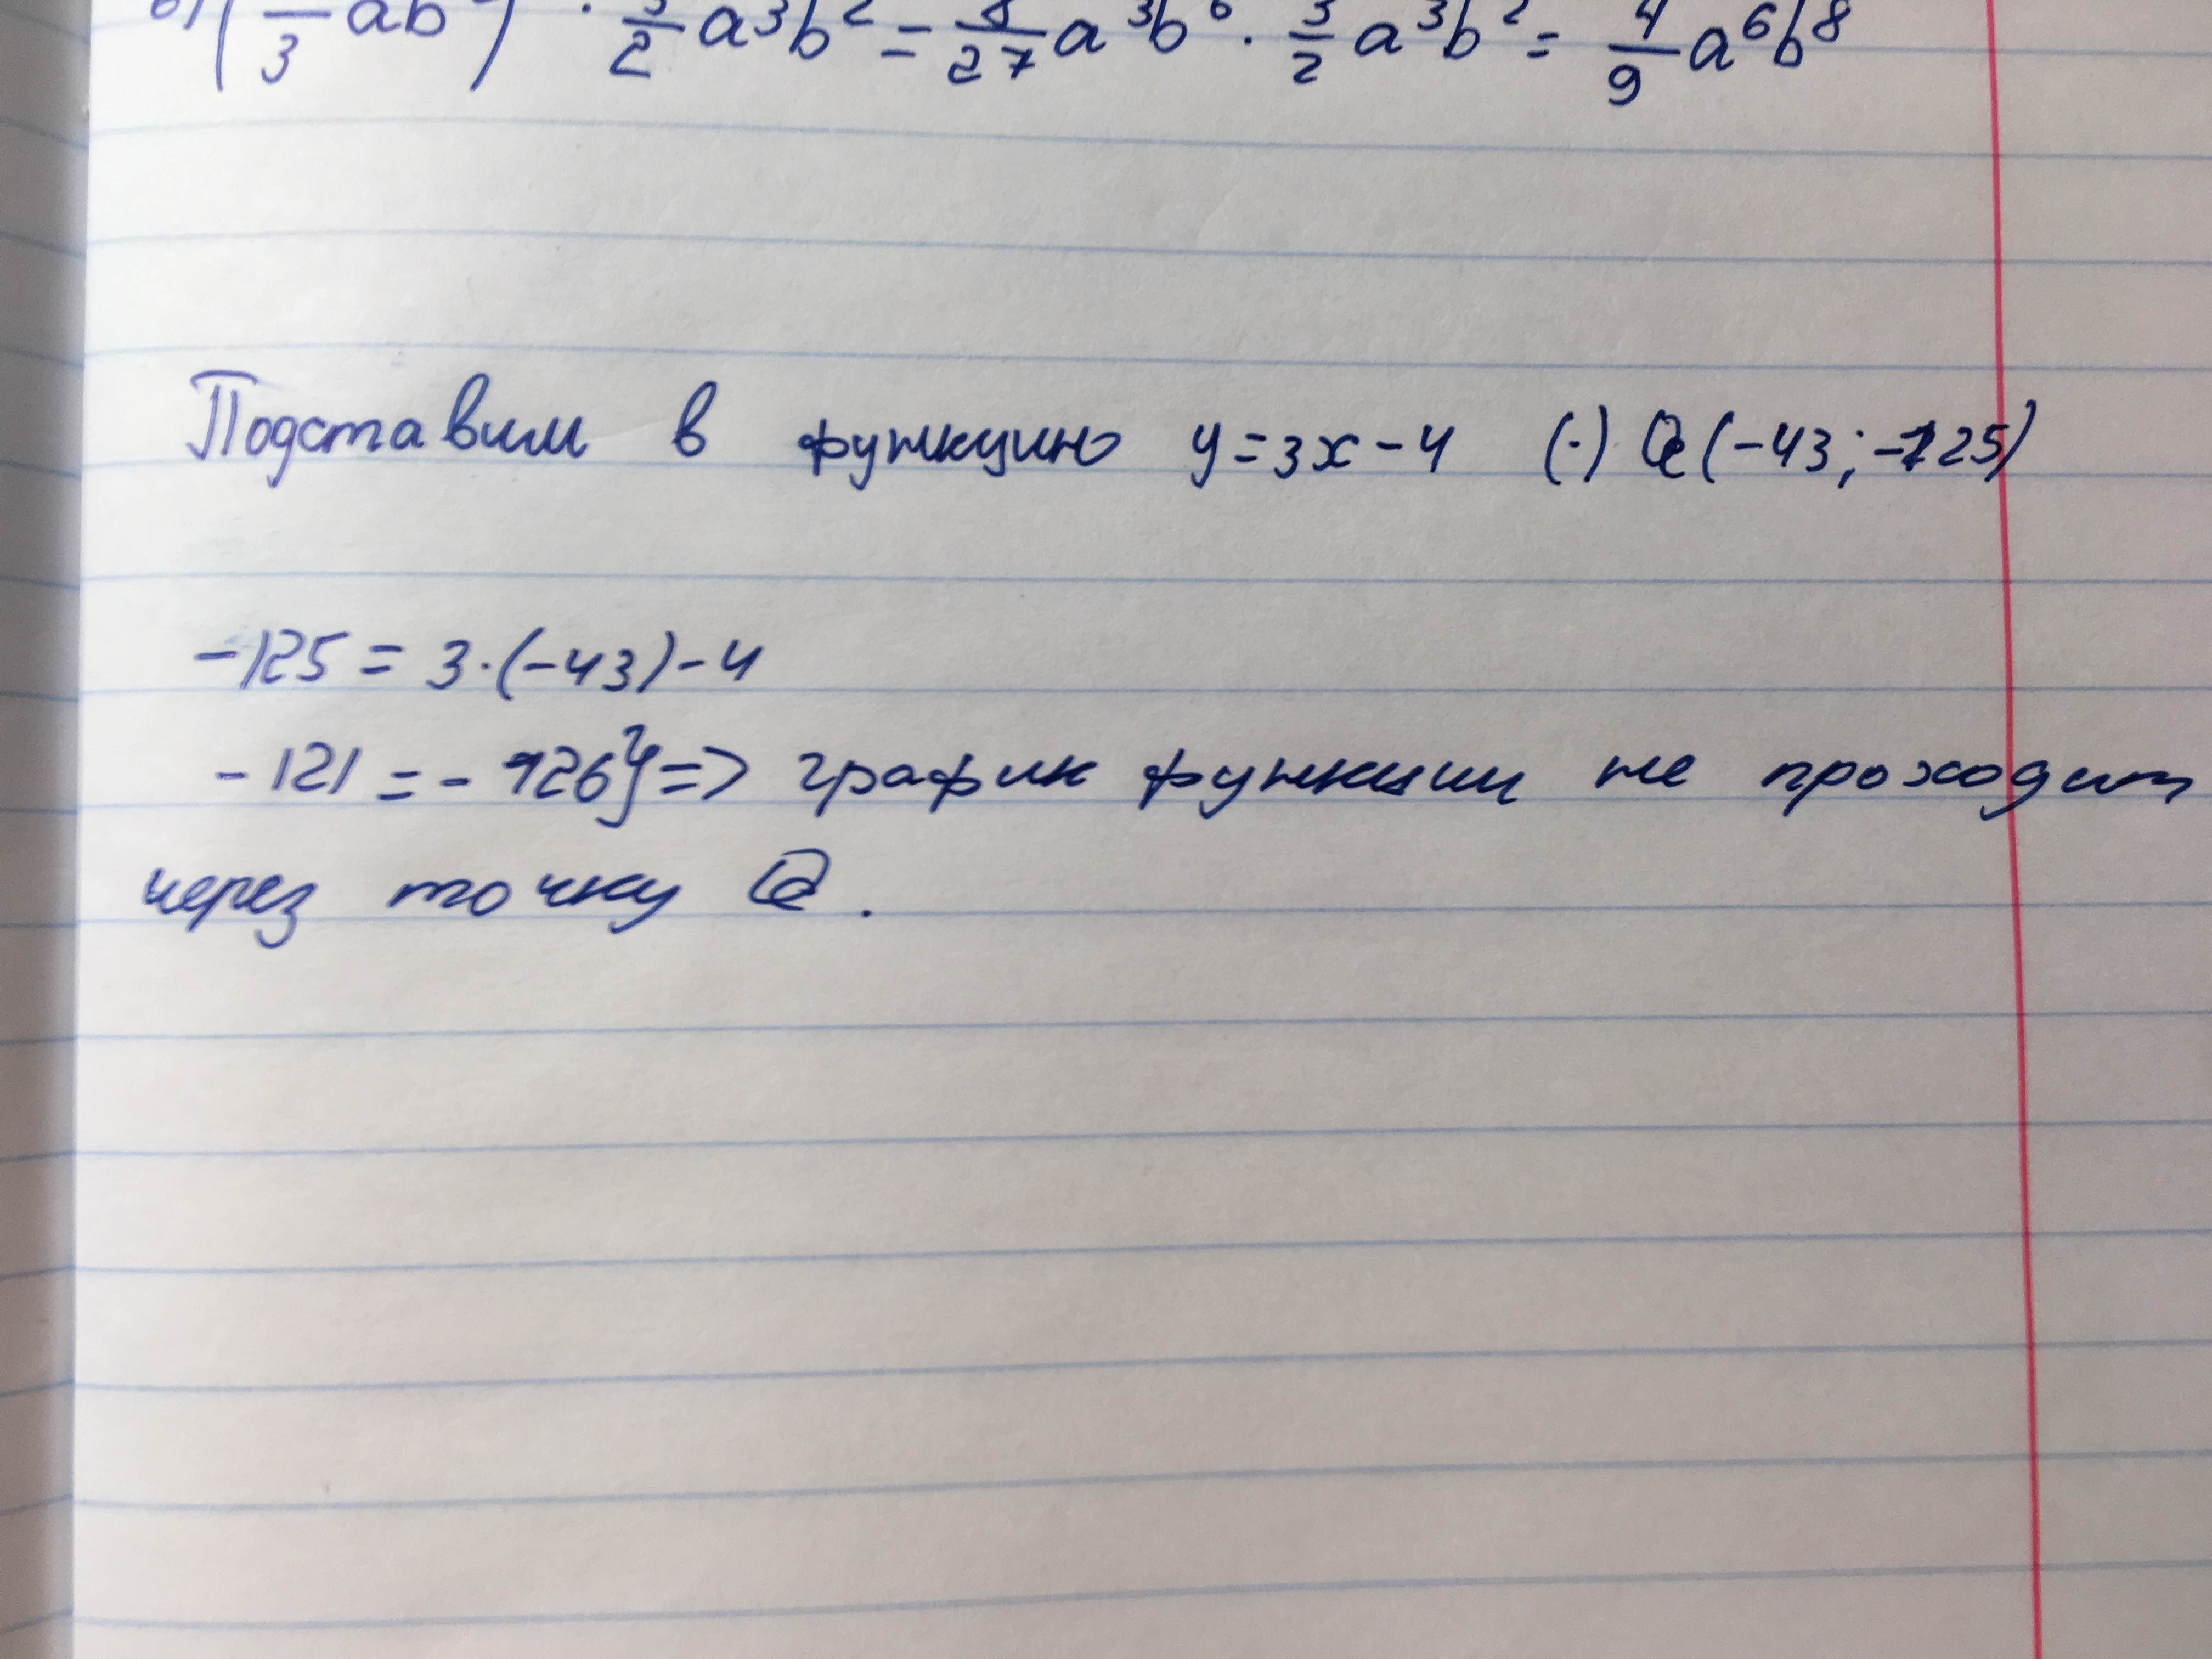 (—3 ab) · 3/2 a³b² = 8/27 a³b⁶ · 3/2 a³b² = 4/9 a⁶b⁸
Подставим в функцию y=3x-4 (·) Q(-43;-125)
-125 = 3·(-43)-4
-121 = -126} => график функции не проходит
через точку Q.